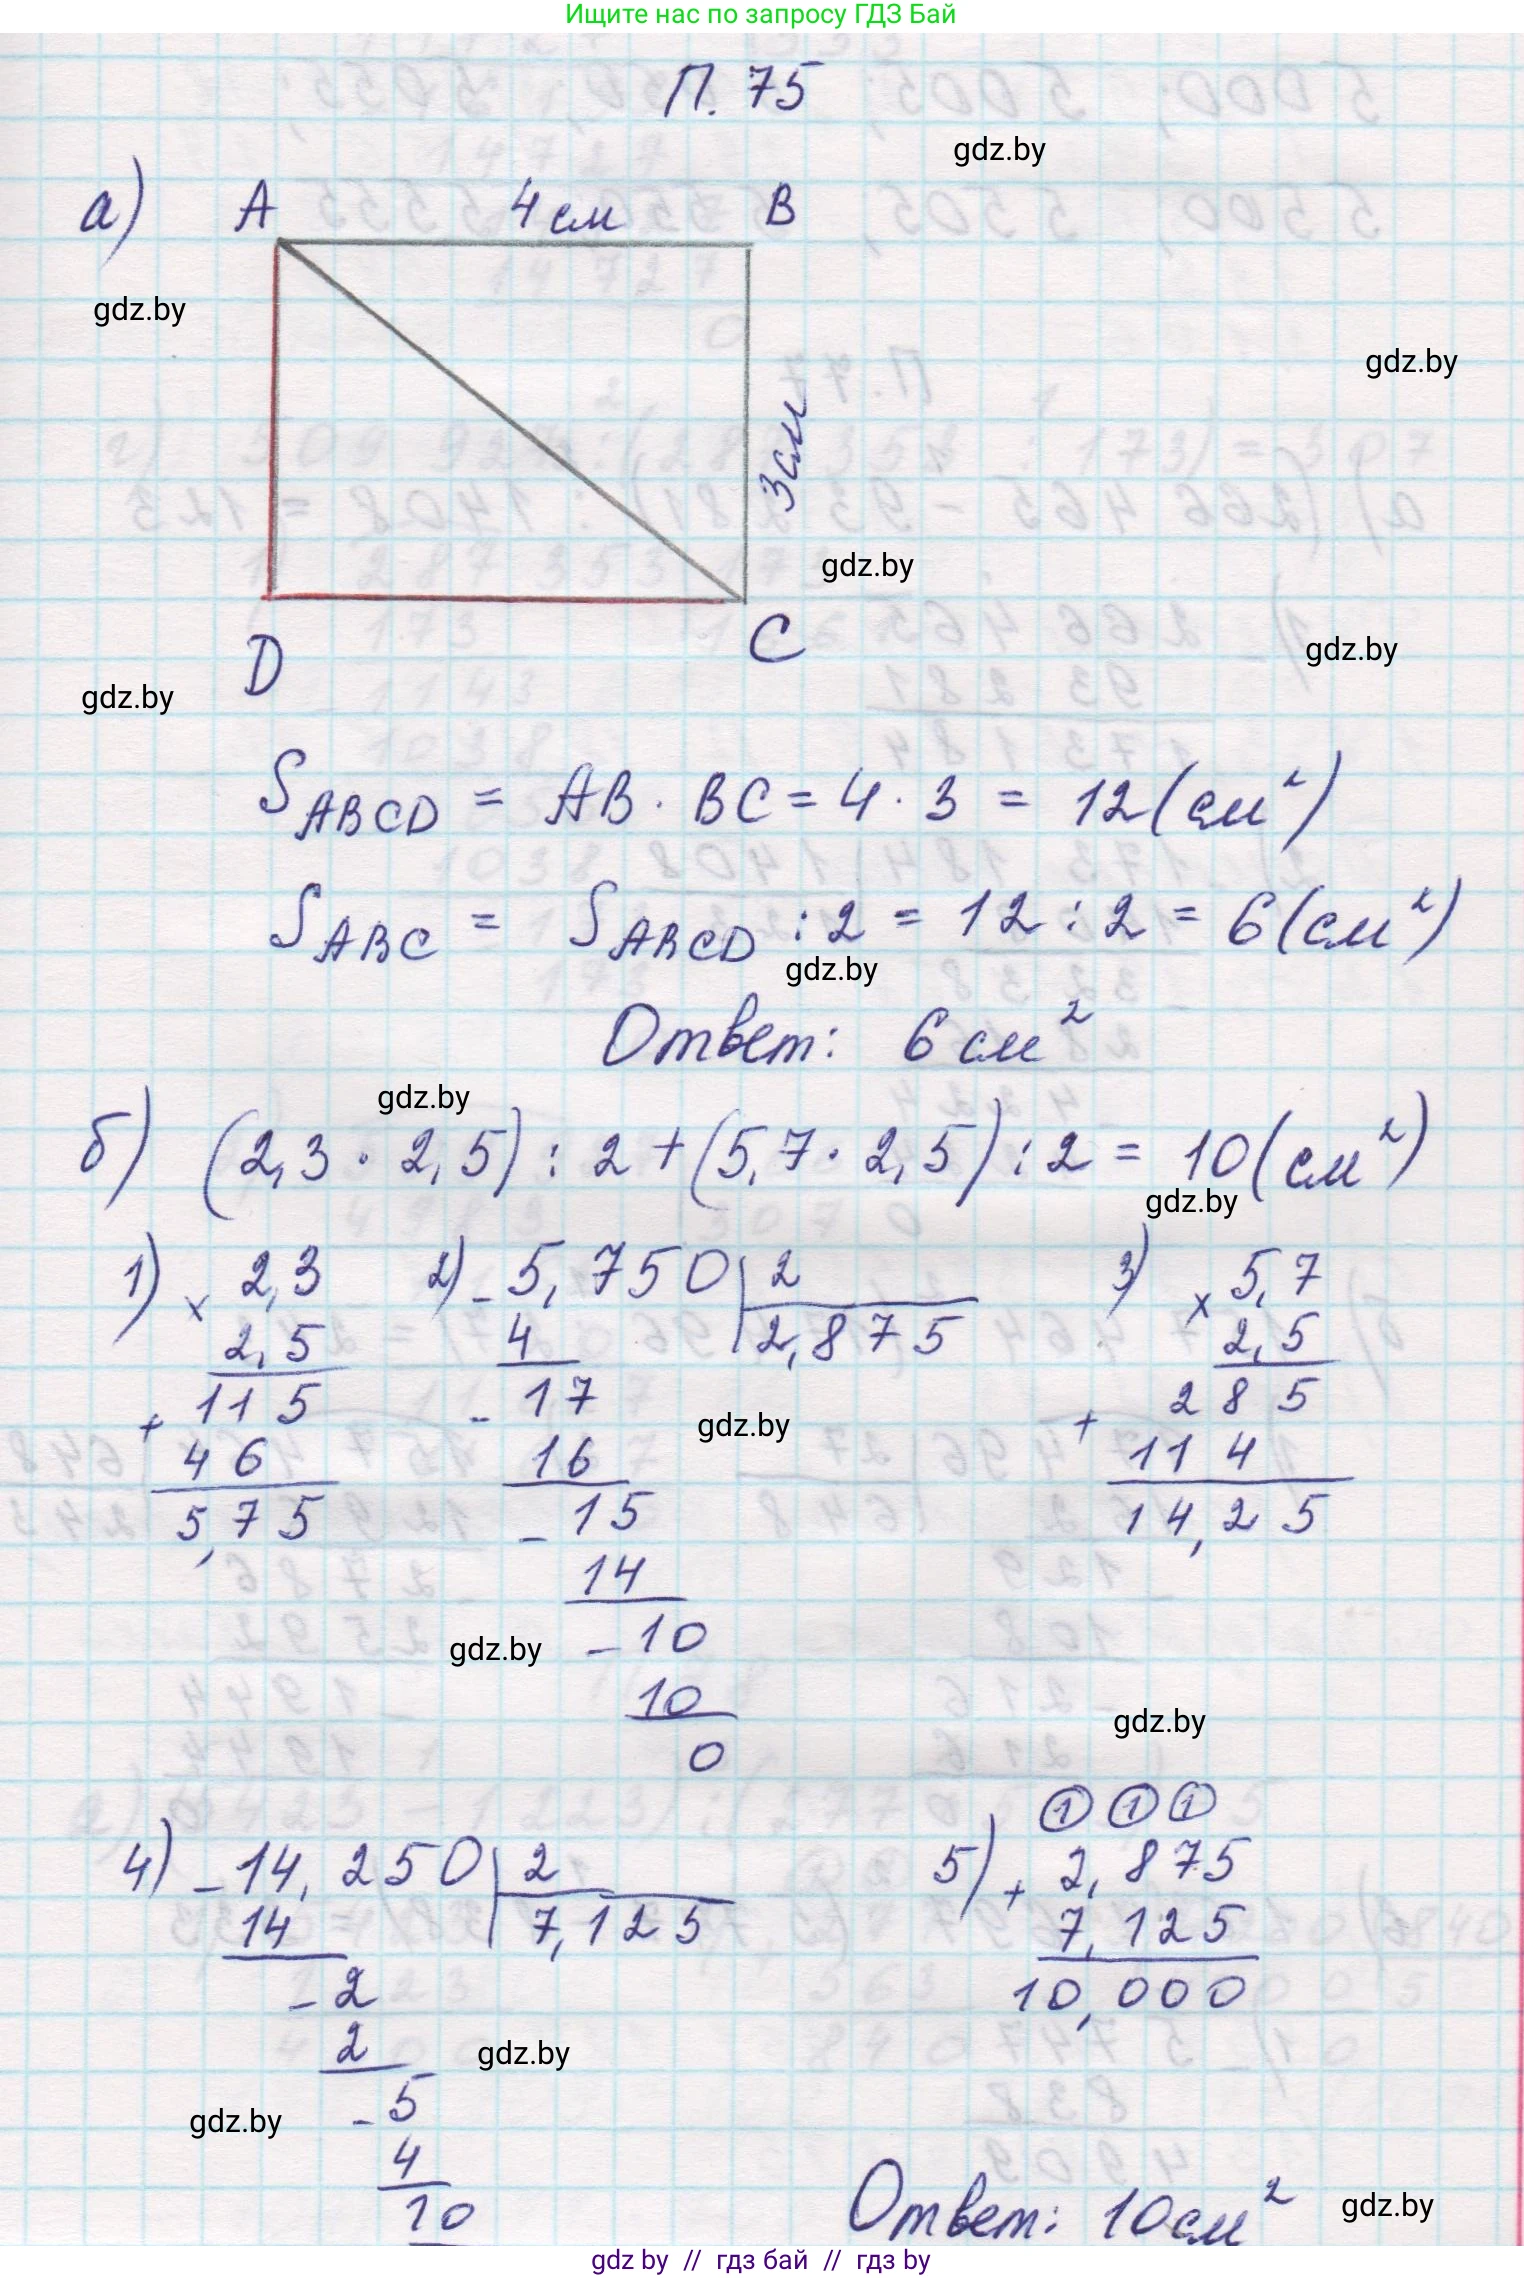 Ищите нас по запросу ГДЗ Бай
П. 75
gdz.by
а) A 4 см B
gdz.by
gdz.by
3 см
gdz.by
D C
gdz.by
gdz.by
S_ABCD = AB · BC = 4 · 3 = 12 (см²)
S_ABC = S_ABCD : 2 = 12 : 2 = 6 (см²)
gdz.by
Ответ: 6 см²
gdz.by
б) (2,3 · 2,5) : 2 + (5,7 · 2,5) : 2 = 10 (см²)
gdz.by
1) × 2,3
2,5
+ 115
46
5,75
2) - 5,750 | 2
4 2,875
- 17
16
- 15
14
- 10
10
0
3) × 5,7
2,5
+ 285
114
14,25
gdz.by
gdz.by
gdz.by
4) - 14,250 | 2
14 7,125
- 2
2
- 5
4
10
5) ① ① ①
+ 2,875
7,125
10,000
gdz.by
gdz.by
Ответ: 10 см²
gdz.by
gdz by // гдз бай // гдз by